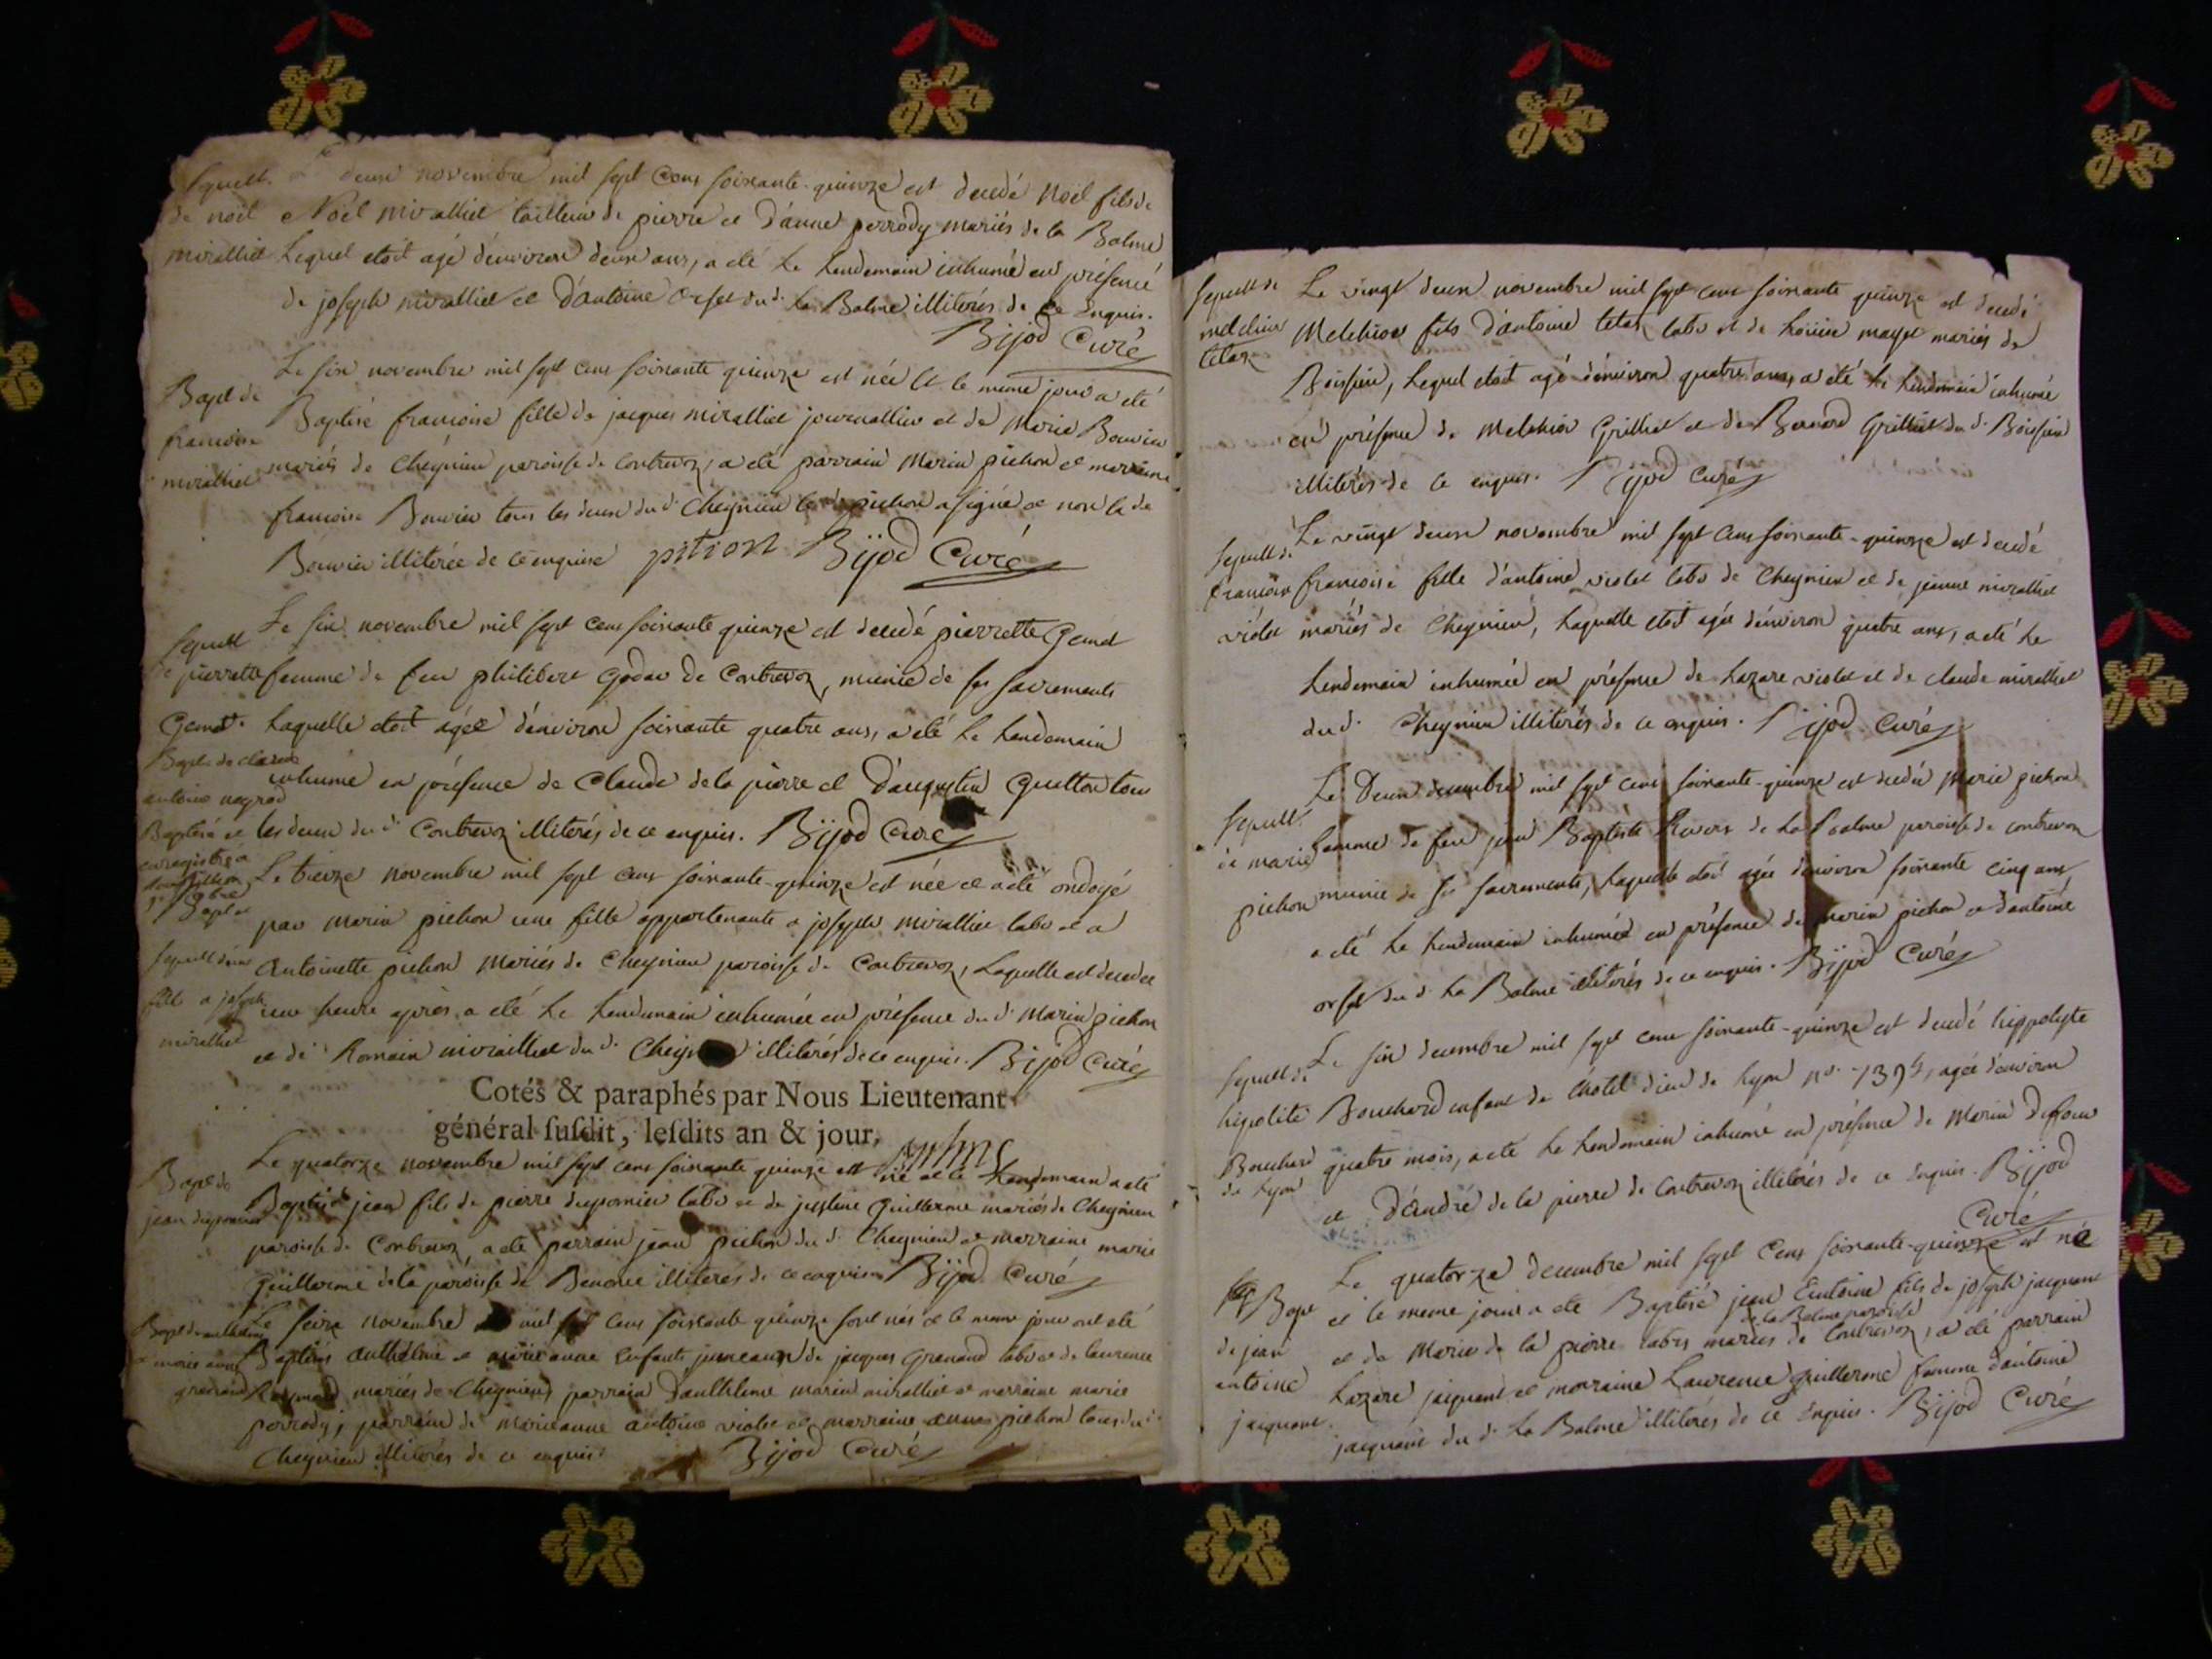 Sepult. Le deux novembre mil sept cens soixante-quinze est decedé noël fils de
de noël Noël miralliet tailleur de pierre et d'anne perrody mariés de la Balme
miralliet Lequel etoit agé d'environ deux ans, a été le lendemain inhumé en présence
de joseph miralliet et d'antoine orset dud. La Balme illiterés de ce enquis.
Bijod Curé
Le six novembre mil sept cens soixante quinze est née et le meme jour a eté
Bapt de
francoise Baptisé francoise fille de jacques miralliet journallier et de Marie Bouvier
miralliet mariés de Cheynieu paroisse de Contrevoz, a eté parrain Marin pichon et marraine
francoise Bouvier tous les deux dud Cheynieu le d. pichon a signé et non la de
Bouvier illiterée de ce enquise pition Bijod Curé
Le six novembre mil sept cens soixante quinze est decedé pierrette Genet
Sepult
de pierrette femme de feu philibert Godar de Contrevoz, munie de ses sacrements
Genet. Laquelle etoit agée d'environ soixante quatre ans, a eté le lendemain
Bapt. de claude
inhumé en présence de Claude de la pierre et d'augustin Guitton tous
antoine
Baptisé et les deux du d. Contrevoz illiterés de ce enquis. Bijod Curé
enregistré a
Le treize novembre mil sept cens soixante-quinze est née et a eté ondoyé
Bapt et
par Marin pichon une fille appartenante a joseph miralliet labr et a
sepult d'une Antoinette pichon Mariés de Cheynieu paroisse de Contrevoz, Laquelle est decedee
fille a joseph une heure après, a eté le lendemain inhumée en présence du d. Marin pichon
miralliet
et de Romain miralliet du d. Cheynieu illiterés de ce enquis. Bijod Curé
Cotés & paraphés par Nous Lieutenant
général susdit, lesdits an & jour,
Le quatorze novembre mil sept cens soixante quinze est né et le lendemain a eté
Bapt de
jean Baptisé jean fils de pierre labr et de justine Guillerme mariés de Cheynieu
paroisse de Contrevoz, a eté parrain jean pichon du d. Cheynieu et marraine marie
Guillerme de la paroisse de illiterés de ce enquis Bijod Curé
Le seize novembre mil sept cens soixante quinze sont nés et le meme jour ont eté
Bapt d'anthelme
et marie anne Baptisés Anthelme et marie anne Enfants jumeaux de jacques Grenand labr et de laurence
grenand mariés de Cheynieu, parrain d'anthelme marin miralliet et marraine marie
perrody, parrain de marie anne antoine violet et marraine anne pichon tous du d.
Cheynieu illiterés de ce enquis. Bijod Curé
Sepult de Le vingt deux novembre mil sept cens soixante quinze est decedé
melchior Melchior fils d'antoine tetaz labr et de mariés de
tetaz
Boissieu, Lequel etoit agé d'environ quatre ans, a eté le lendemain inhumé
en présence de Melchior Grilliet et de Bernard Grilliet du d. Boissieu
illiterés de ce enquis. Bijod Curé
Le vingt deux novembre mil sept cens soixante-quinze est decedé
Sepult de
francoise francoise fille d'antoine violet labr de Cheynieu et de jeanne miralliet
violet mariés de Cheynieu, Laquelle etoit agée d'environ quatre ans, a eté le
lendemain inhumée en présence de Lazare violet et de claude miralliet
du d. Cheynieu illiterés de ce enquis. Bijod Curé
Le Deux decembre mil sept cens soixante-quinze est decedée Marie pichon
Sepult.
de marie femme de feu jean Baptiste de La Balme paroisse de contrevoz
pichon munie de ses sacrements, Laquelle etoit agée d'environ soixante cinq ans
a eté le lendemain inhumée en présence de marin pichon et d'antoine
orset du d. La Balme illiterés de ce enquis. Bijod Curé
Le six decembre mil sept cens soixante-quinze est decedé hippolyte
Sepult de
hipolite Bouchard enfant de l'hotel dieu de Lyon agée d'environ
Bouchard quatre mois, a eté le lendemain inhumé en présence de Marin
de Lyon
et d'André de la pierre de Contrevoz illiterés de ce enquis. Bijod
Curé
Le quatorze decembre mil sept cens soixante-quinze est né
Bapt et le meme jour a eté Baptisé jean Antoine fils de joseph jacquant
de la Balme paroisse
de jean et de Marie de la pierre labrs mariés de Contrevoz, a eté parrain
antoine Lazare jacquant et marraine Laurence Guillerme femme d'antoine
jacquant. jacquant du d. La Balme illiterés de ce enquis. Bijod Curé